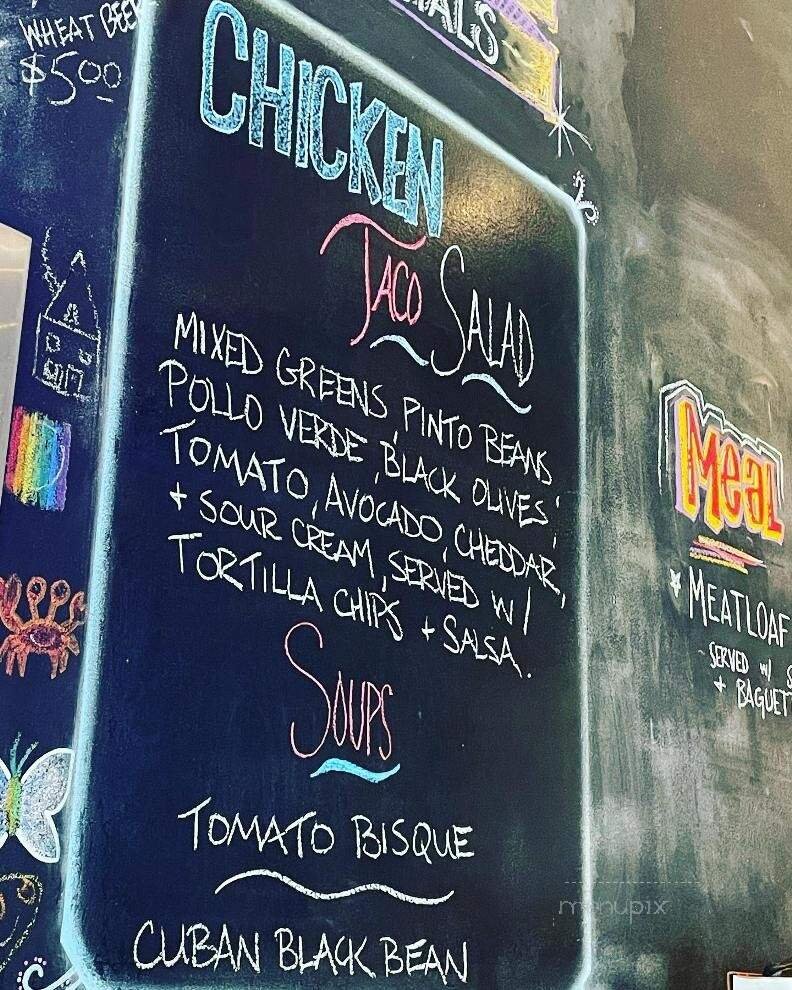 WHEAT BEER
$5.00
CHICKEN
TACO SALAD
MIXED GREENS, PINTO BEANS,
POLLO VERDE, BLACK OLIVES,
TOMATO, AVOCADO, CHEDDAR,
+ SOUR CREAM, SERVED W/
TORTILLA CHIPS + SALSA.
SOUPS
TOMATO BISQUE
CUBAN BLACK BEAN
MEAL
MEATLOAF
- SERVED W/ S
+ BAGUET
menupix